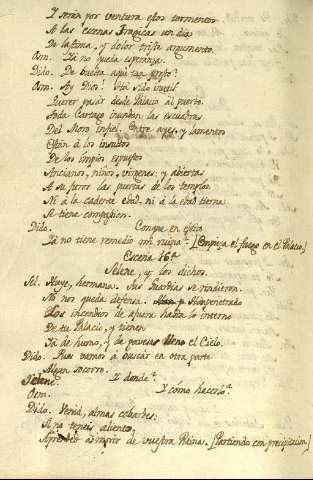 Y seràn por ventura estos tormentos
A las escenas tragicas un dia
De lastima, y dolor triste argumento.
Osm. Yà no queda esperanza.
Dido. De buelta aqui tan presto?
Osm. Ay Dios! Hà sido inutil
Querer pasar desde Palacio al puerto.
Toda Cartago inundan las escuadras
Del Moro infiel. Entre ayes, y lamentos
Estàn à los insultos
De los impios expuestos
Ancianos, niños, virgenes: y abiertas
A su furor las puertas de los templos.
Ni à la cadente edad, ni à la edad tierna
Se tiene compasion.
Dido. Conque en efecto
Yà no tiene remedio mi ruina? [Empieza el fuego en el Palacio]
Escena 16ª
Selene, y los dichos.
Sel. Huye, hermana. Tus Guardias se rindieron.
No nos queda defensa. Han penetrado
Los incendios de afuera hasta lo interno
De tu Palacio, y tienen
Yà de humo, y de pavesas lleno el Cielo.
Dido. Pues vamos à buscar en otra parte
Algun socorro.
Selene. Y donde?
Osm. Y cómo hacerlo?
Dido. Venid, almas cobardes:
Si no teneis aliento,
Aprended à morir de vuestra Reina. [Partiendo con precipitacion]